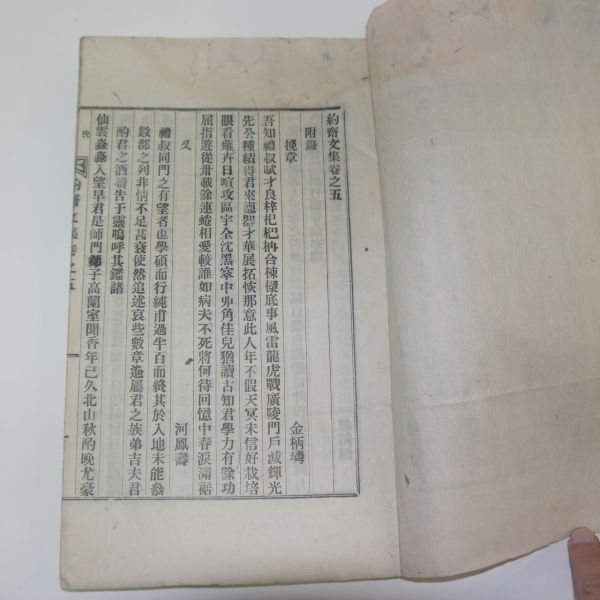 約齋文集卷之五
附錄
挽章 金柄璘
吾知禮叔賦才良梓杞杷柟合棟樑底事風雷龍虎戰廣陵門戶減輝光
先公種績得君來德器才華展拓恢那意此人年不假天冥未信好栽培
眼看薙卉日喧攻區宇全沈黑窣中丱角佳兒猶讀古知君學力有餘功
屈指遊從卅載餘連蜷相愛較誰如病夫不死將何待回憶中春淚滿裾
又 河鳳壽
禮叔同門之有望者也學碩而行純甫過半百而終其於入地未能參
數郡之列非情不足甚衰使然追述哀些數章遙屬君之族弟吉夫君
酌君之酒讀告于靈嗚呼其鑑諸
仙雲矗矗入望早君是師門弟子高蘭室聞香年已久北山秋酌晚尤豪
約齋文集卷之五